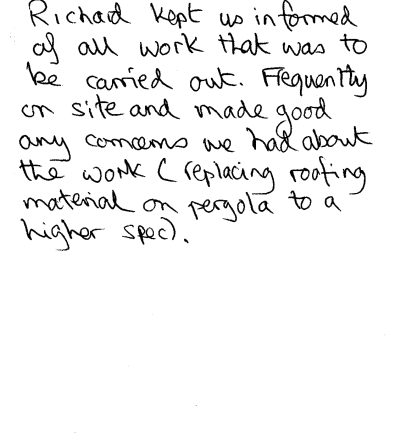 Richard kept us informed
of all work that was to
be carried out. Frequently
on site and made good
any concerns we had about
the work (replacing roofing
material on pergola to a
higher spec).